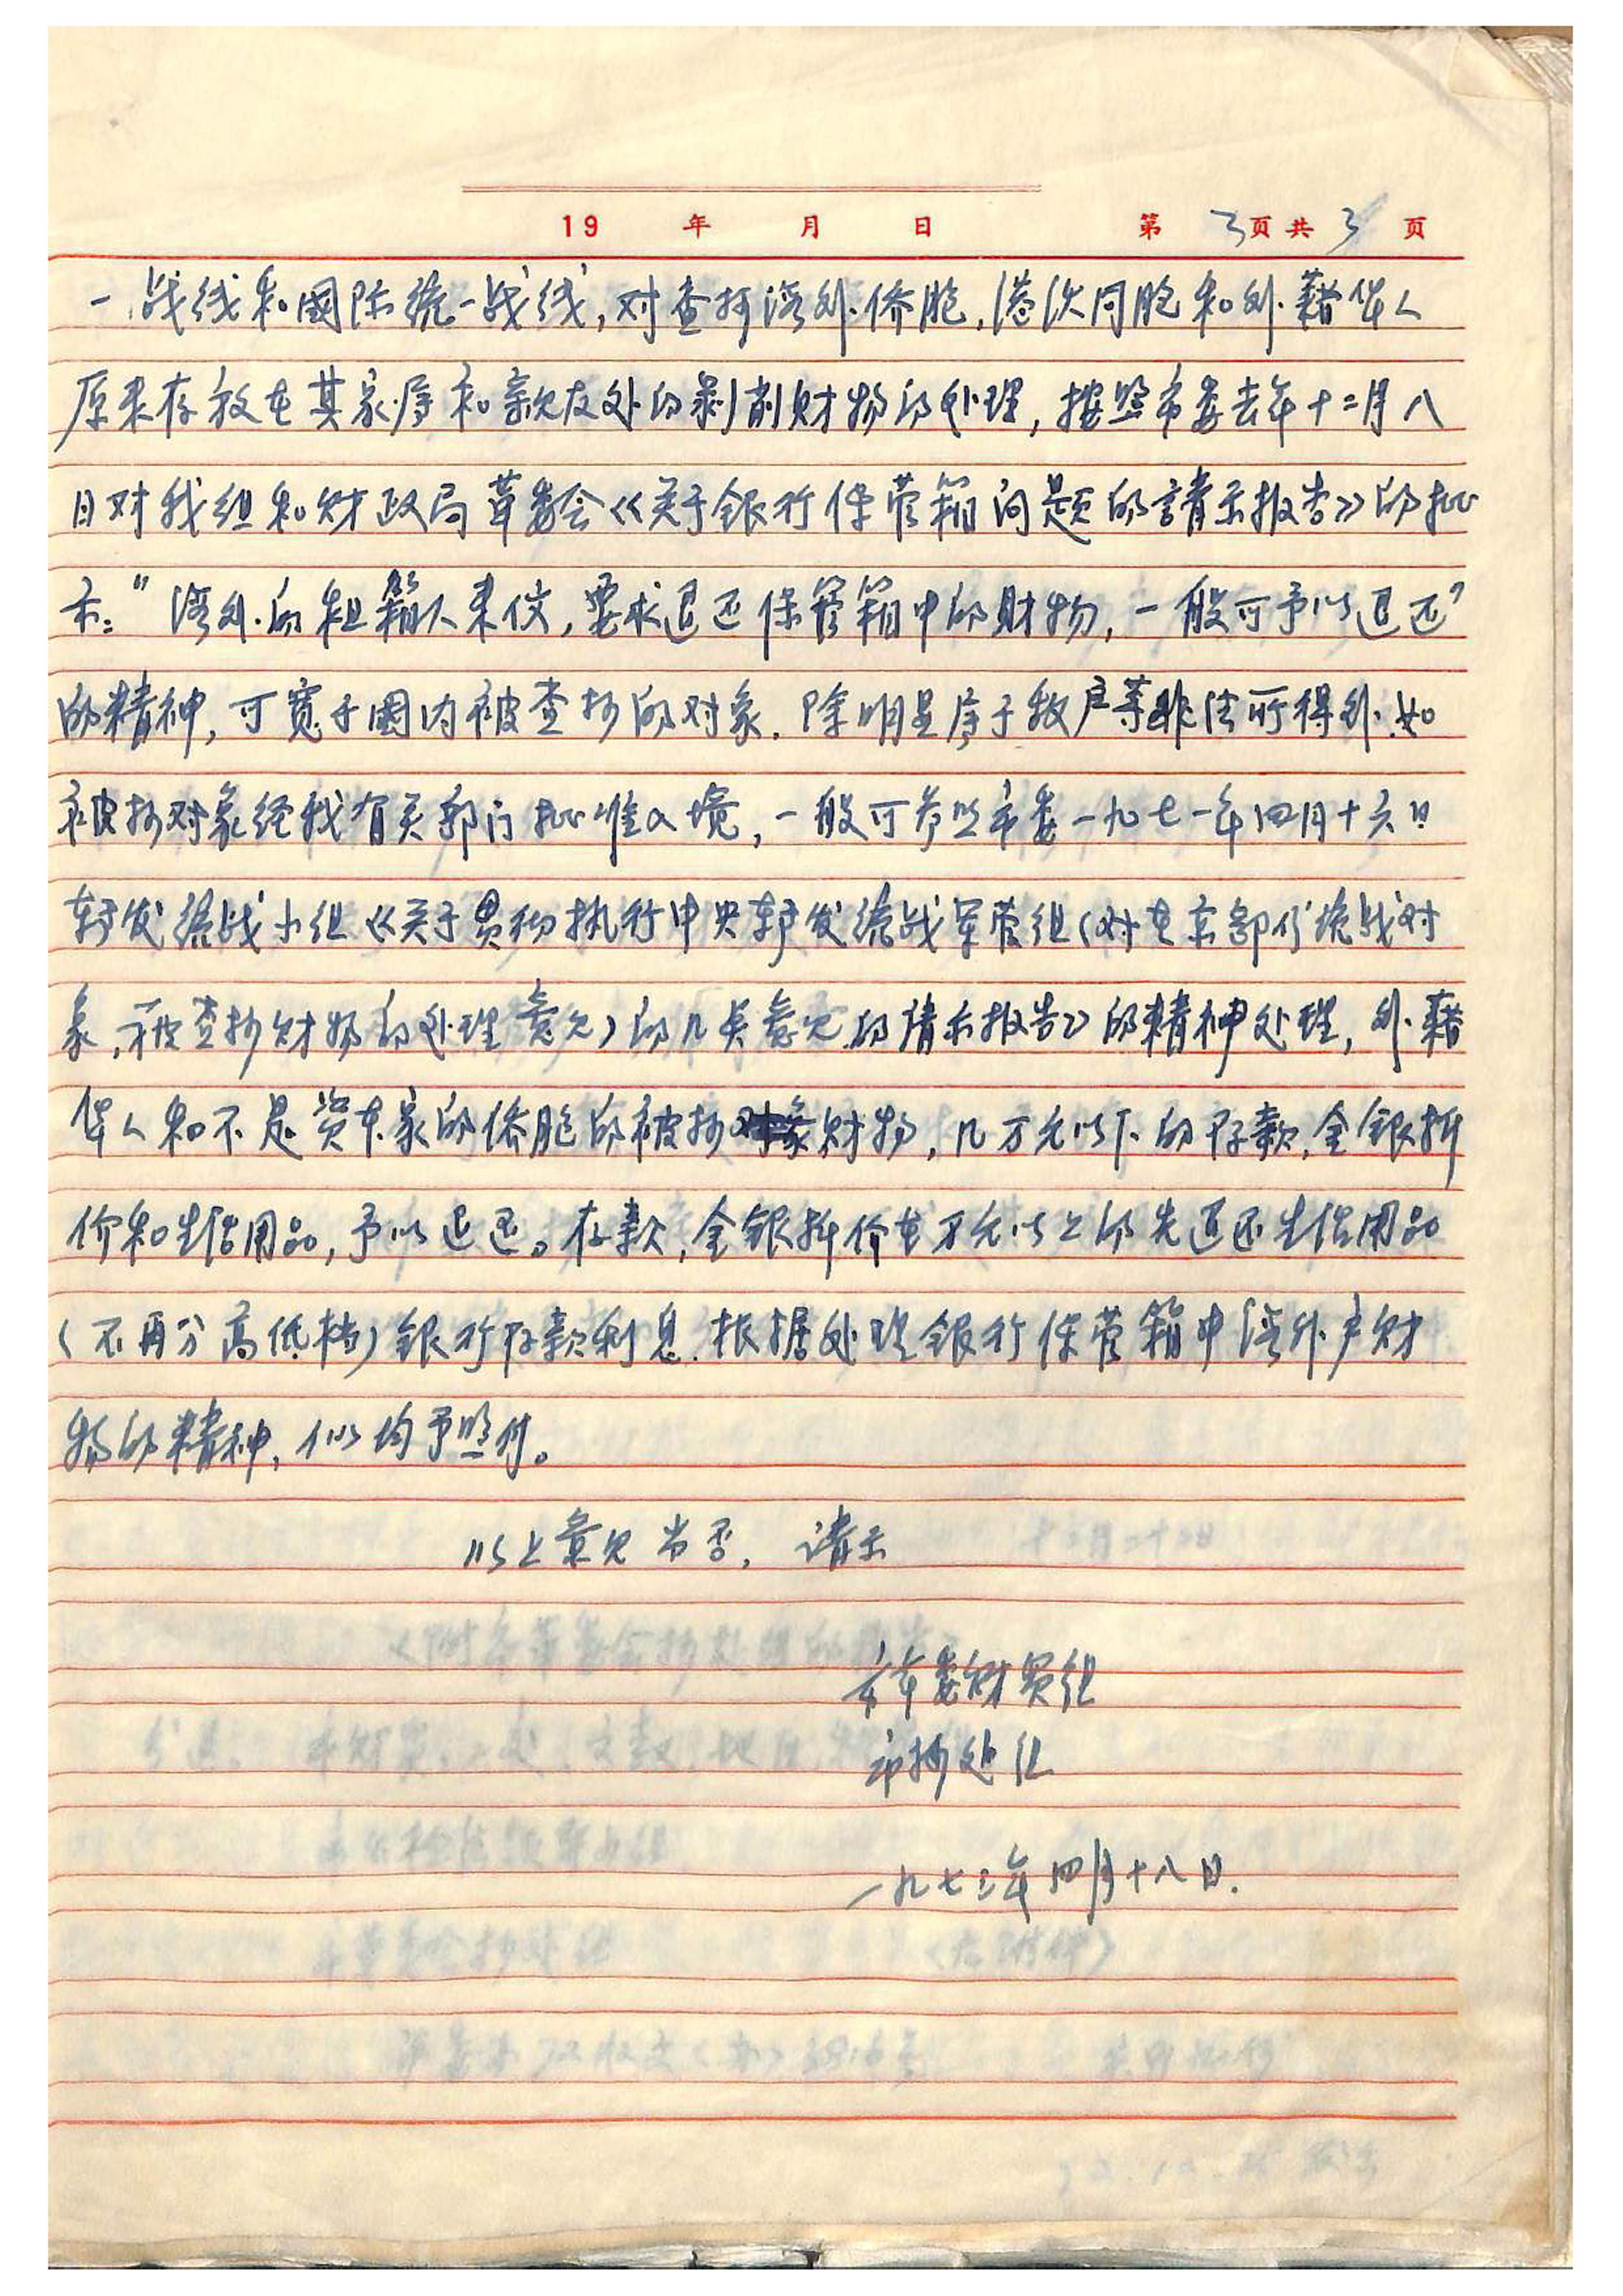 19 年 月 日 第 3 页 共 3 页
一战线和國际统一战线，对查抄海外侨胞，港沃同胞和外籍华人
原来存放在其家属和亲友处的剥削财物的处理，按照市委去年十二月八
日对我组和财政局革委会《关于銀行保管箱问题的請示报告》的批
示：“海外的租箱人来仪，要求退还保管箱中的财物，一般可予以退还”
的精神，可宽于國内被查抄的对象．除明显属于敌产等非法所得外．如
被抄对象经我有关部门批准入境，一般可参照市委一九七一年四月十六日
转发统战小组《关于贯彻执行中央转发统战军管组（对在京部份统战对
象，被查抄财物的处理意见）的几点意见的请示报告》的精神处理，外籍
华人和不是资本家的侨胞的被抄财物，几万元以下的存款，金銀折
价和生活用品，予以退还。存款，金銀折价在万元以上的先退还生活用品
（不再分高低档）銀行存款利息．根据处理銀行保管箱中海外户财
物的精神，似均予照付。
以上意见当否， 请示
市革委财贸组
市抄处组
一九七三年四月十八日．